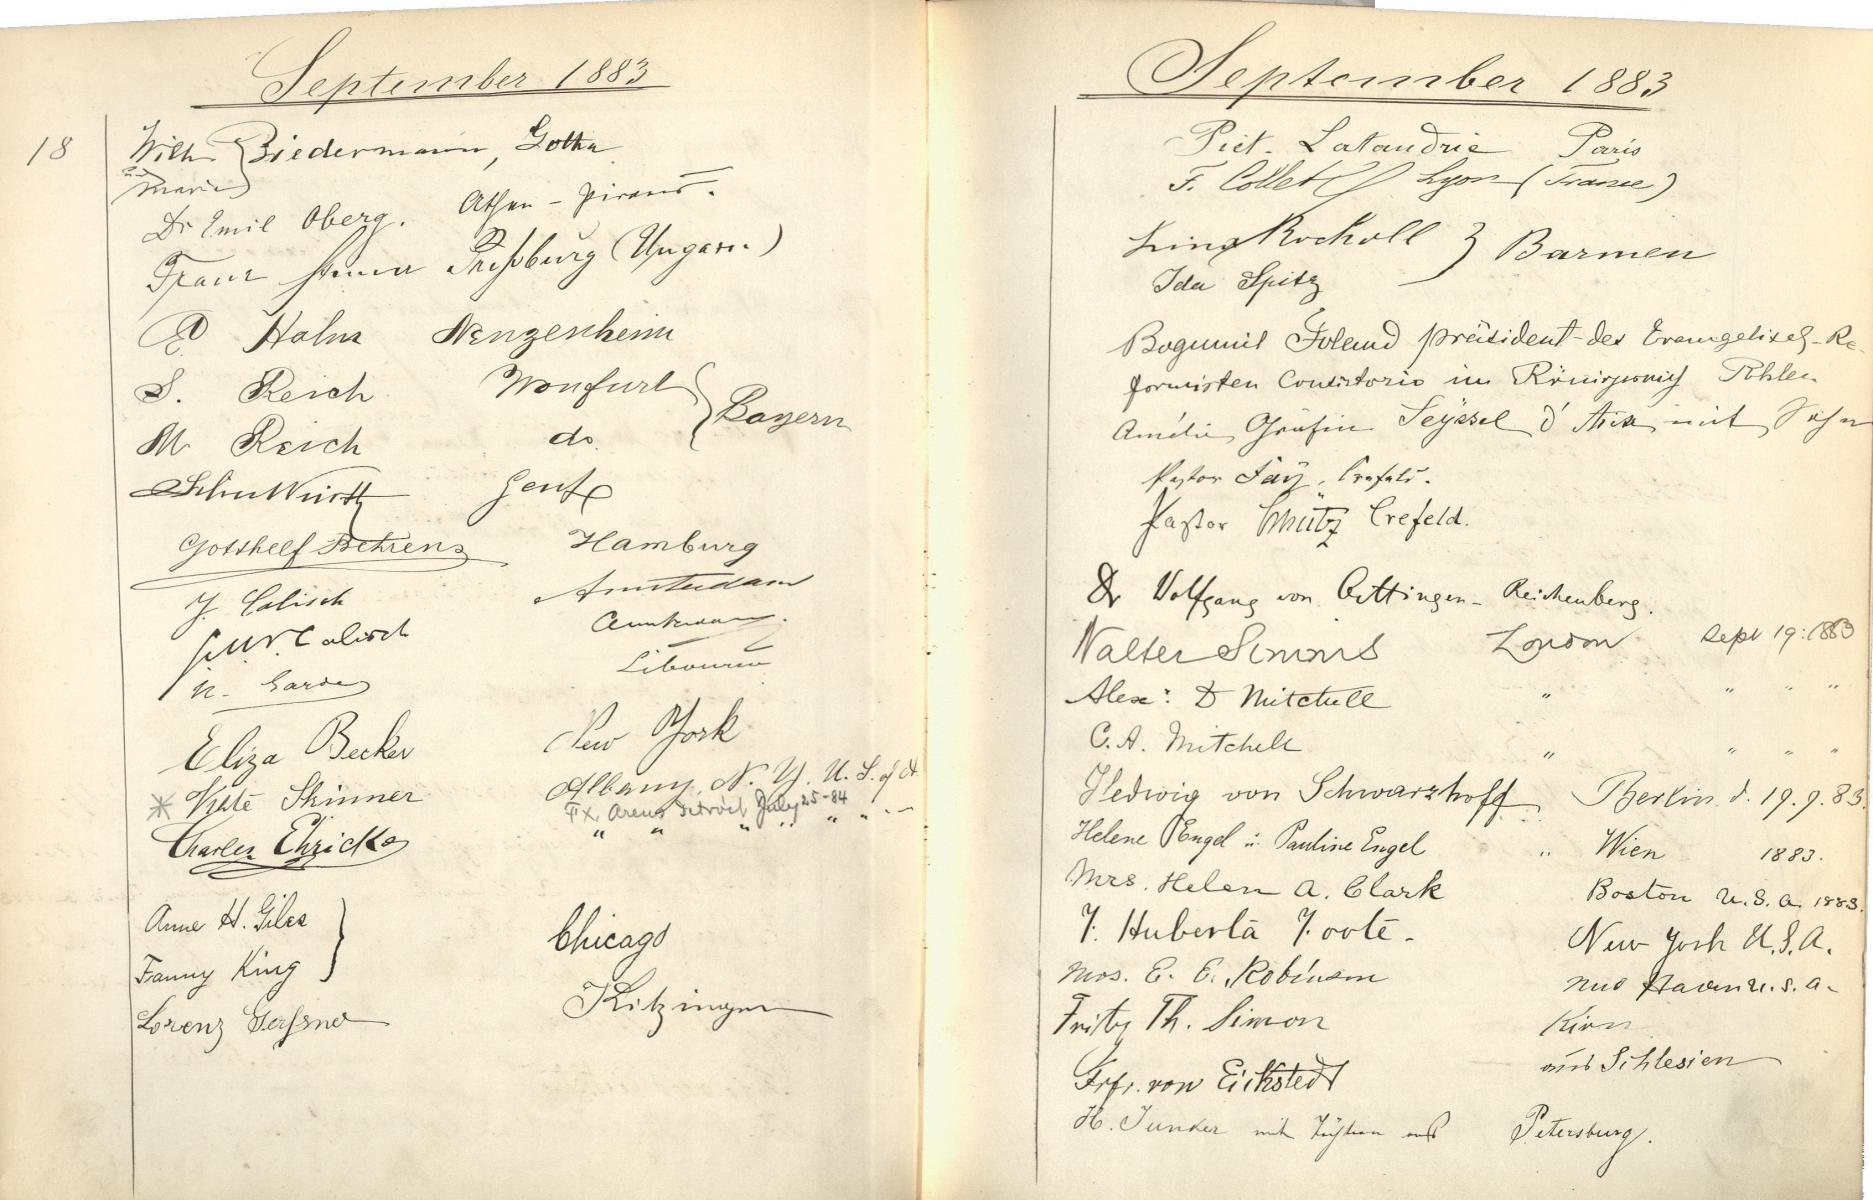 September 1883
18
Wilh. Biedermann, Gotha
und
Marie
Dr Emil Oberg. Athen - Piraeus.
Franz Preßburg (Ungarn)
E Hahn Nenzenheim
S. Reich Wonfurt
Bayern
M. Reich do.
Genf
Gotthelf Behrens Hamburg
J. Calisch Amsterdam
Calisch Amsterdam.
Libourne
Eliza Becker New York
* Kate Skinner Albany, N. Y. U. S. of A
Fx. Arens Detroit July 25-84
Charles Ehricke " " " " " "
Anne H. Giles
Chicago
Fanny King
Lorenz Gaßner Kitzingen
September 1883
Pict. Latandrie Paris
F. Collet Lyon (France)
Rockoll
Barmen
Ida Spitz
Bogumil Foland Präsident des Evangelisch-Re-
formirten Consistorio im Königreich Pohlen
Amélie Gräfin Seyssel d'Aix mit Sohn
Pastor Fay, Crefeld.
Pastor Schütz Crefeld.
Dr Wolfgang von Oettingen - Reichenberg.
Walter Simms London Sept 19: 1883
Alexr: D Mitchell " " " "
C. A. Mitchell " " " "
Hedwig von Schwarzhoff Berlin d. 19. 9. 83.
Helene Engel u. Pauline Engel " Wien 1883.
Mrs. Helen A. Clark Boston U.S.A. 1883.
F. Huberta Foote. New York U.S.A.
Mrs. E. E. Robinson New Haven U.S.A.
Fritz Th. Simon Kirn
Frfr. von Eickstedt aus Schlesien
H. Junker mit Töchtern aus Petersburg.